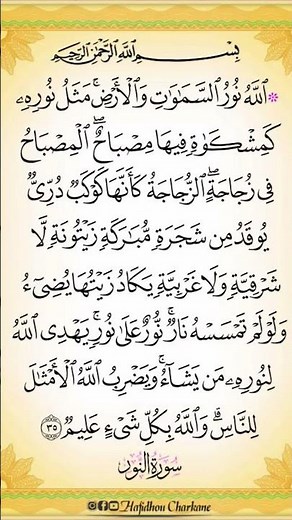 بِسْمِ ٱللَّهِ ٱلرَّحْمَٰنِ ٱلرَّحِيمِ
* ٱللَّهُ نُورُ ٱلسَّمَٰوَٰتِ وَٱلْأَرْضِ ۚ مَثَلُ نُورِهِۦ
كَمِشْكَوٰةٍ فِيهَا مِصْبَاحٌ ۖ ٱلْمِصْبَاحُ
فِى زُجَاجَةٍ ۖ ٱلزُّجَاجَةُ كَأَنَّهَا كَوْكَبٌ دُرِّىٌّ
يُوقَدُ مِن شَجَرَةٍ مُّبَٰرَكَةٍ زَيْتُونَةٍ لَّا
شَرْقِيَّةٍ وَلَا غَرْبِيَّةٍ يَكَادُ زَيْتُهَا يُضِىٓءُ
وَلَوْ لَمْ تَمْسَسْهُ نَارٌ ۚ نُّورٌ عَلَىٰ نُورٍ ۗ يَهْدِى ٱللَّهُ
لِنُورِهِۦ مَن يَشَآءُ ۚ وَيَضْرِبُ ٱللَّهُ ٱلْأَمْثَٰلَ
لِلنَّاسِ ۗ وَٱللَّهُ بِكُلِّ شَىْءٍ عَلِيمٌ ٣٥
سُورَةُ النُّور
Hafidhou Charkane